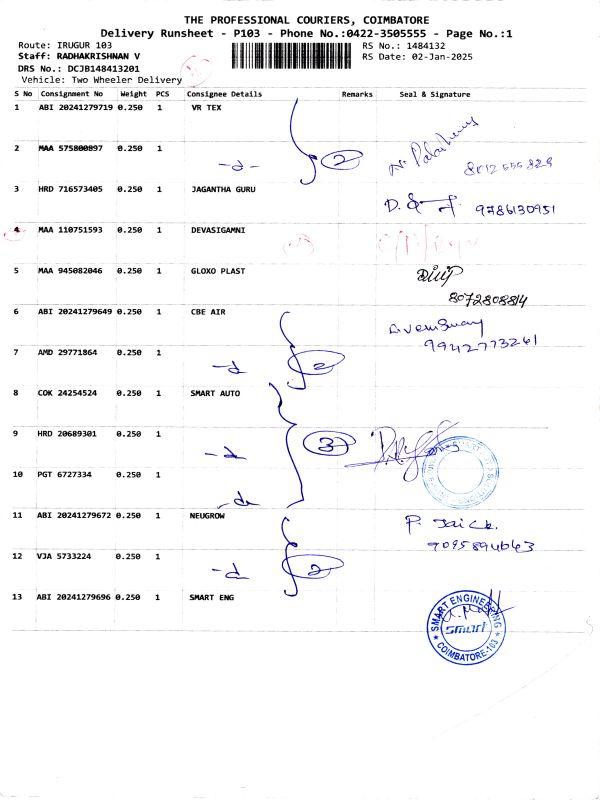 THE PROFESSIONAL COURIERS, COIMBATORE
Delivery Runsheet - P103 - Phone No.:0422-3505555 - Page No.:1
Route: IRUGUR 103 RS No.: 1484132
Staff: RADHAKRISHNAN V RS Date: 02-Jan-2025
DRS No.: DCJB148413201
Vehicle: Two Wheeler Delivery
S No Consignment No Weight PCS Consignee Details Remarks Seal & Signature
1 ABI 20241279719 0.250 1 VR TEX
2 MAA 575800897 0.250 1 -d- 2
8012555828
3 HRD 716573405 0.250 1 JAGANTHA GURU
9786130951
4 MAA 110751593 0.250 1 DEVASIGAMNI
5 MAA 945082046 0.250 1 GLOXO PLAST
8072808814
6 ABI 20241279649 0.250 1 CBE AIR
9942773261
7 AMD 29771864 0.250 1 -d 2
8 COK 24254524 0.250 1 SMART AUTO
9 HRD 20689301 0.250 1 -d 3
10 PGT 6727334 0.250 1 -d
11 ABI 20241279672 0.250 1 NEUGROW P. Jaick.
9095894063
12 VJA 5733224 0.250 1 -d 2
13 ABI 20241279696 0.250 1 SMART ENG
SMART ENGINEERING
smart
COIMBATORE-103